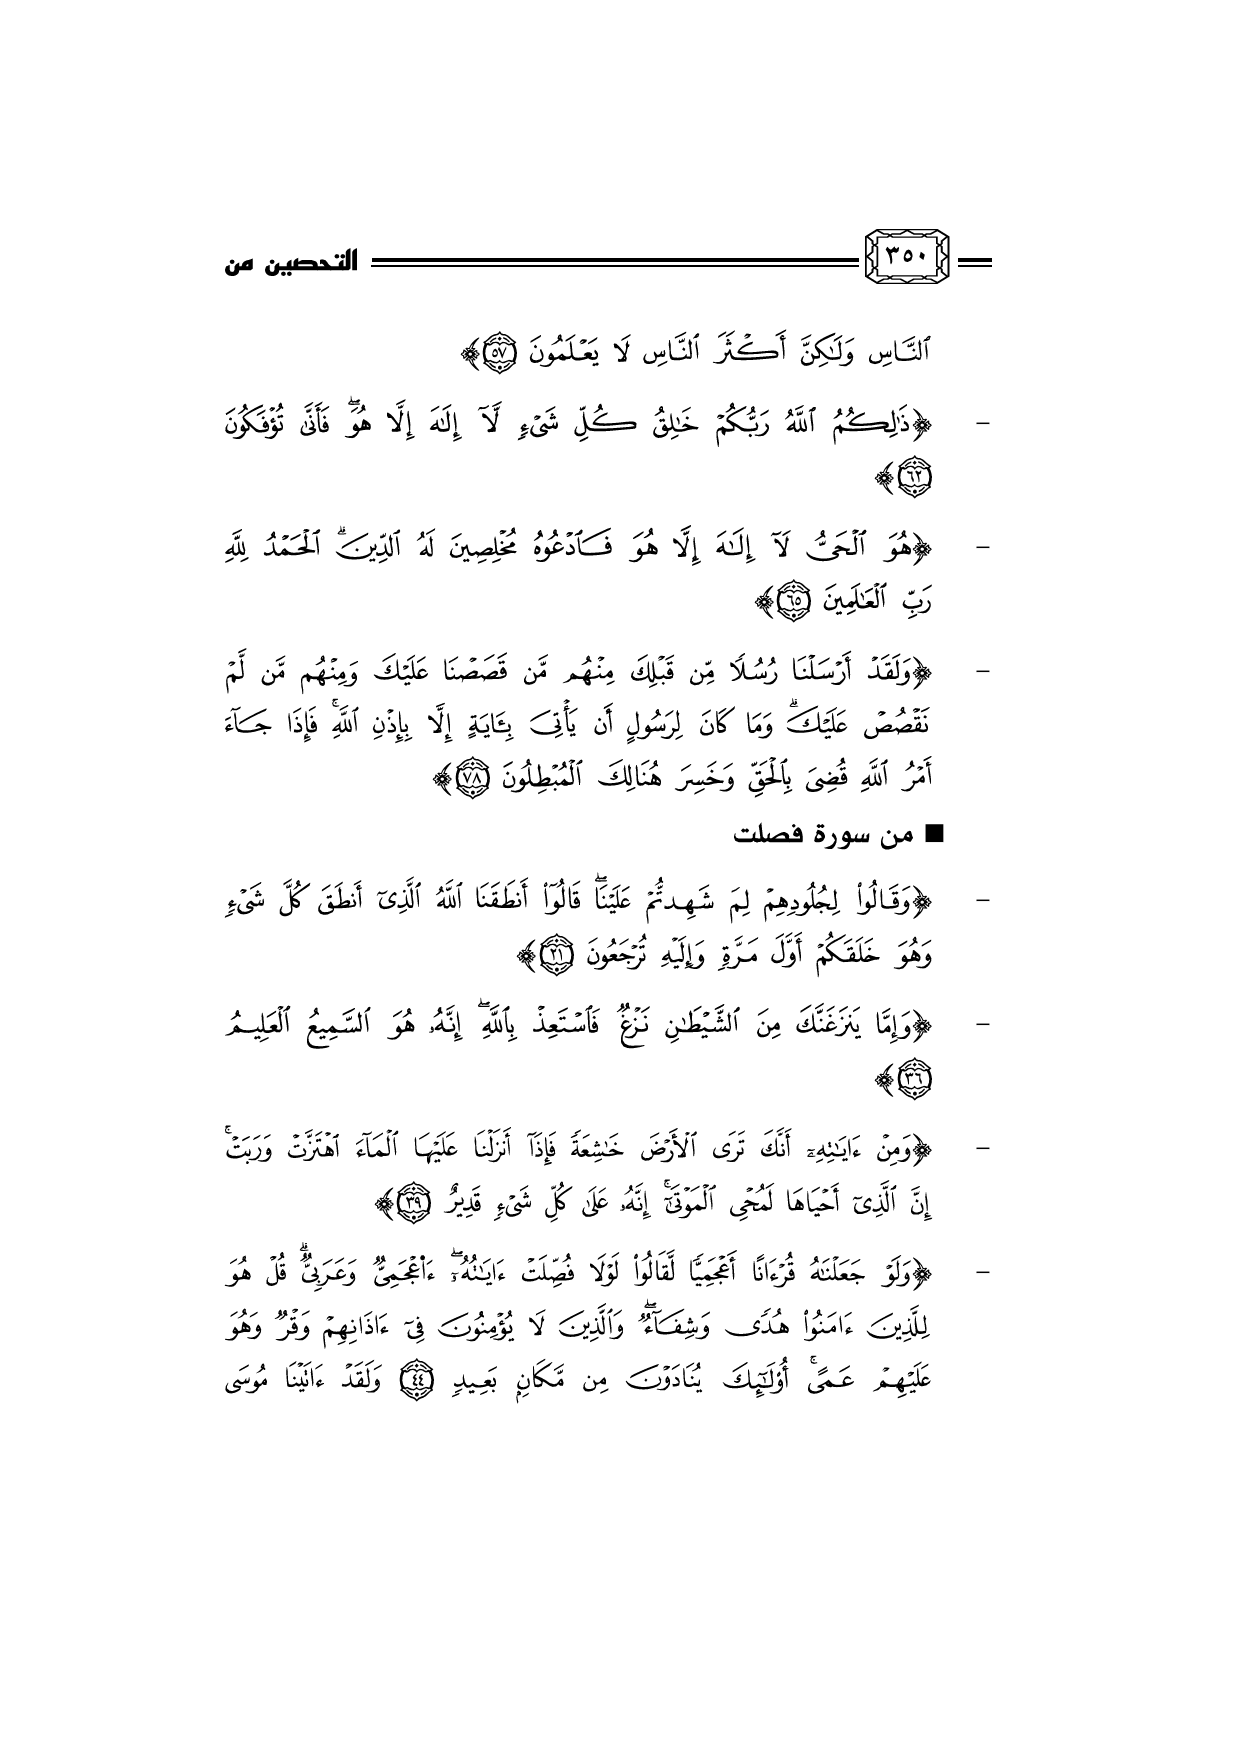 ٣٥٠ التحصين من
ٱلنَّاسِ وَلَٰكِنَّ أَكۡثَرَ ٱلنَّاسِ لَا يَعۡلَمُونَ ٥٧﴾
- ﴿ذَٰلِكُمُ ٱللَّهُ رَبُّكُمۡ خَٰلِقُ كُلِّ شَيۡءٖ لَّآ إِلَٰهَ إِلَّا هُوَۖ فَأَنَّىٰ تُؤۡفَكُونَ
٦٢﴾
- ﴿هُوَ ٱلۡحَيُّ لَآ إِلَٰهَ إِلَّا هُوَ فَٱدۡعُوهُ مُخۡلِصِينَ لَهُ ٱلدِّينَۗ ٱلۡحَمۡدُ لِلَّهِ
رَبِّ ٱلۡعَٰلَمِينَ ٦٥﴾
- ﴿وَلَقَدۡ أَرۡسَلۡنَا رُسُلٗا مِّن قَبۡلِكَ مِنۡهُم مَّن قَصَصۡنَا عَلَيۡكَ وَمِنۡهُم مَّن لَّمۡ
نَقۡصُصۡ عَلَيۡكَۗ وَمَا كَانَ لِرَسُولٍ أَن يَأۡتِيَ بِـَٔايَةٍ إِلَّا بِإِذۡنِ ٱللَّهِۚ فَإِذَا جَآءَ
أَمۡرُ ٱللَّهِ قُضِيَ بِٱلۡحَقِّ وَخَسِرَ هُنَالِكَ ٱلۡمُبۡطِلُونَ ٧٨﴾
■ من سورة فصلت
- ﴿وَقَالُواْ لِجُلُودِهِمۡ لِمَ شَهِدتُّمۡ عَلَيۡنَاۖ قَالُوٓاْ أَنطَقَنَا ٱللَّهُ ٱلَّذِيٓ أَنطَقَ كُلَّ شَيۡءٖ
وَهُوَ خَلَقَكُمۡ أَوَّلَ مَرَّةٖ وَإِلَيۡهِ تُرۡجَعُونَ ٢١﴾
- ﴿وَإِمَّا يَنزَغَنَّكَ مِنَ ٱلشَّيۡطَٰنِ نَزۡغٞ فَٱسۡتَعِذۡ بِٱللَّهِۖ إِنَّهُۥ هُوَ ٱلسَّمِيعُ ٱلۡعَلِيمُ
٣٦﴾
- ﴿وَمِنۡ ءَايَٰتِهِۦٓ أَنَّكَ تَرَى ٱلۡأَرۡضَ خَٰشِعَةٗ فَإِذَآ أَنزَلۡنَا عَلَيۡهَا ٱلۡمَآءَ ٱهۡتَزَّتۡ وَرَبَتۡۚ
إِنَّ ٱلَّذِيٓ أَحۡيَاهَا لَمُحۡيِ ٱلۡمَوۡتَىٰٓۚ إِنَّهُۥ عَلَىٰ كُلِّ شَيۡءٖ قَدِيرٌ ٣٩﴾
- ﴿وَلَوۡ جَعَلۡنَٰهُ قُرۡءَانًا أَعۡجَمِيّٗا لَّقَالُواْ لَوۡلَا فُصِّلَتۡ ءَايَٰتُهُۥٓۖ ءَا۬عۡجَمِيّٞ وَعَرَبِيّٞۗ قُلۡ هُوَ
لِلَّذِينَ ءَامَنُواْ هُدٗى وَشِفَآءٞۖ وَٱلَّذِينَ لَا يُؤۡمِنُونَ فِيٓ ءَاذَانِهِمۡ وَقۡرٞ وَهُوَ
عَلَيۡهِمۡ عَمًىۚ أُوْلَٰٓئِكَ يُنَادَوۡنَ مِن مَّكَانِۭ بَعِيدٖ ٤٤ وَلَقَدۡ ءَاتَيۡنَا مُوسَى